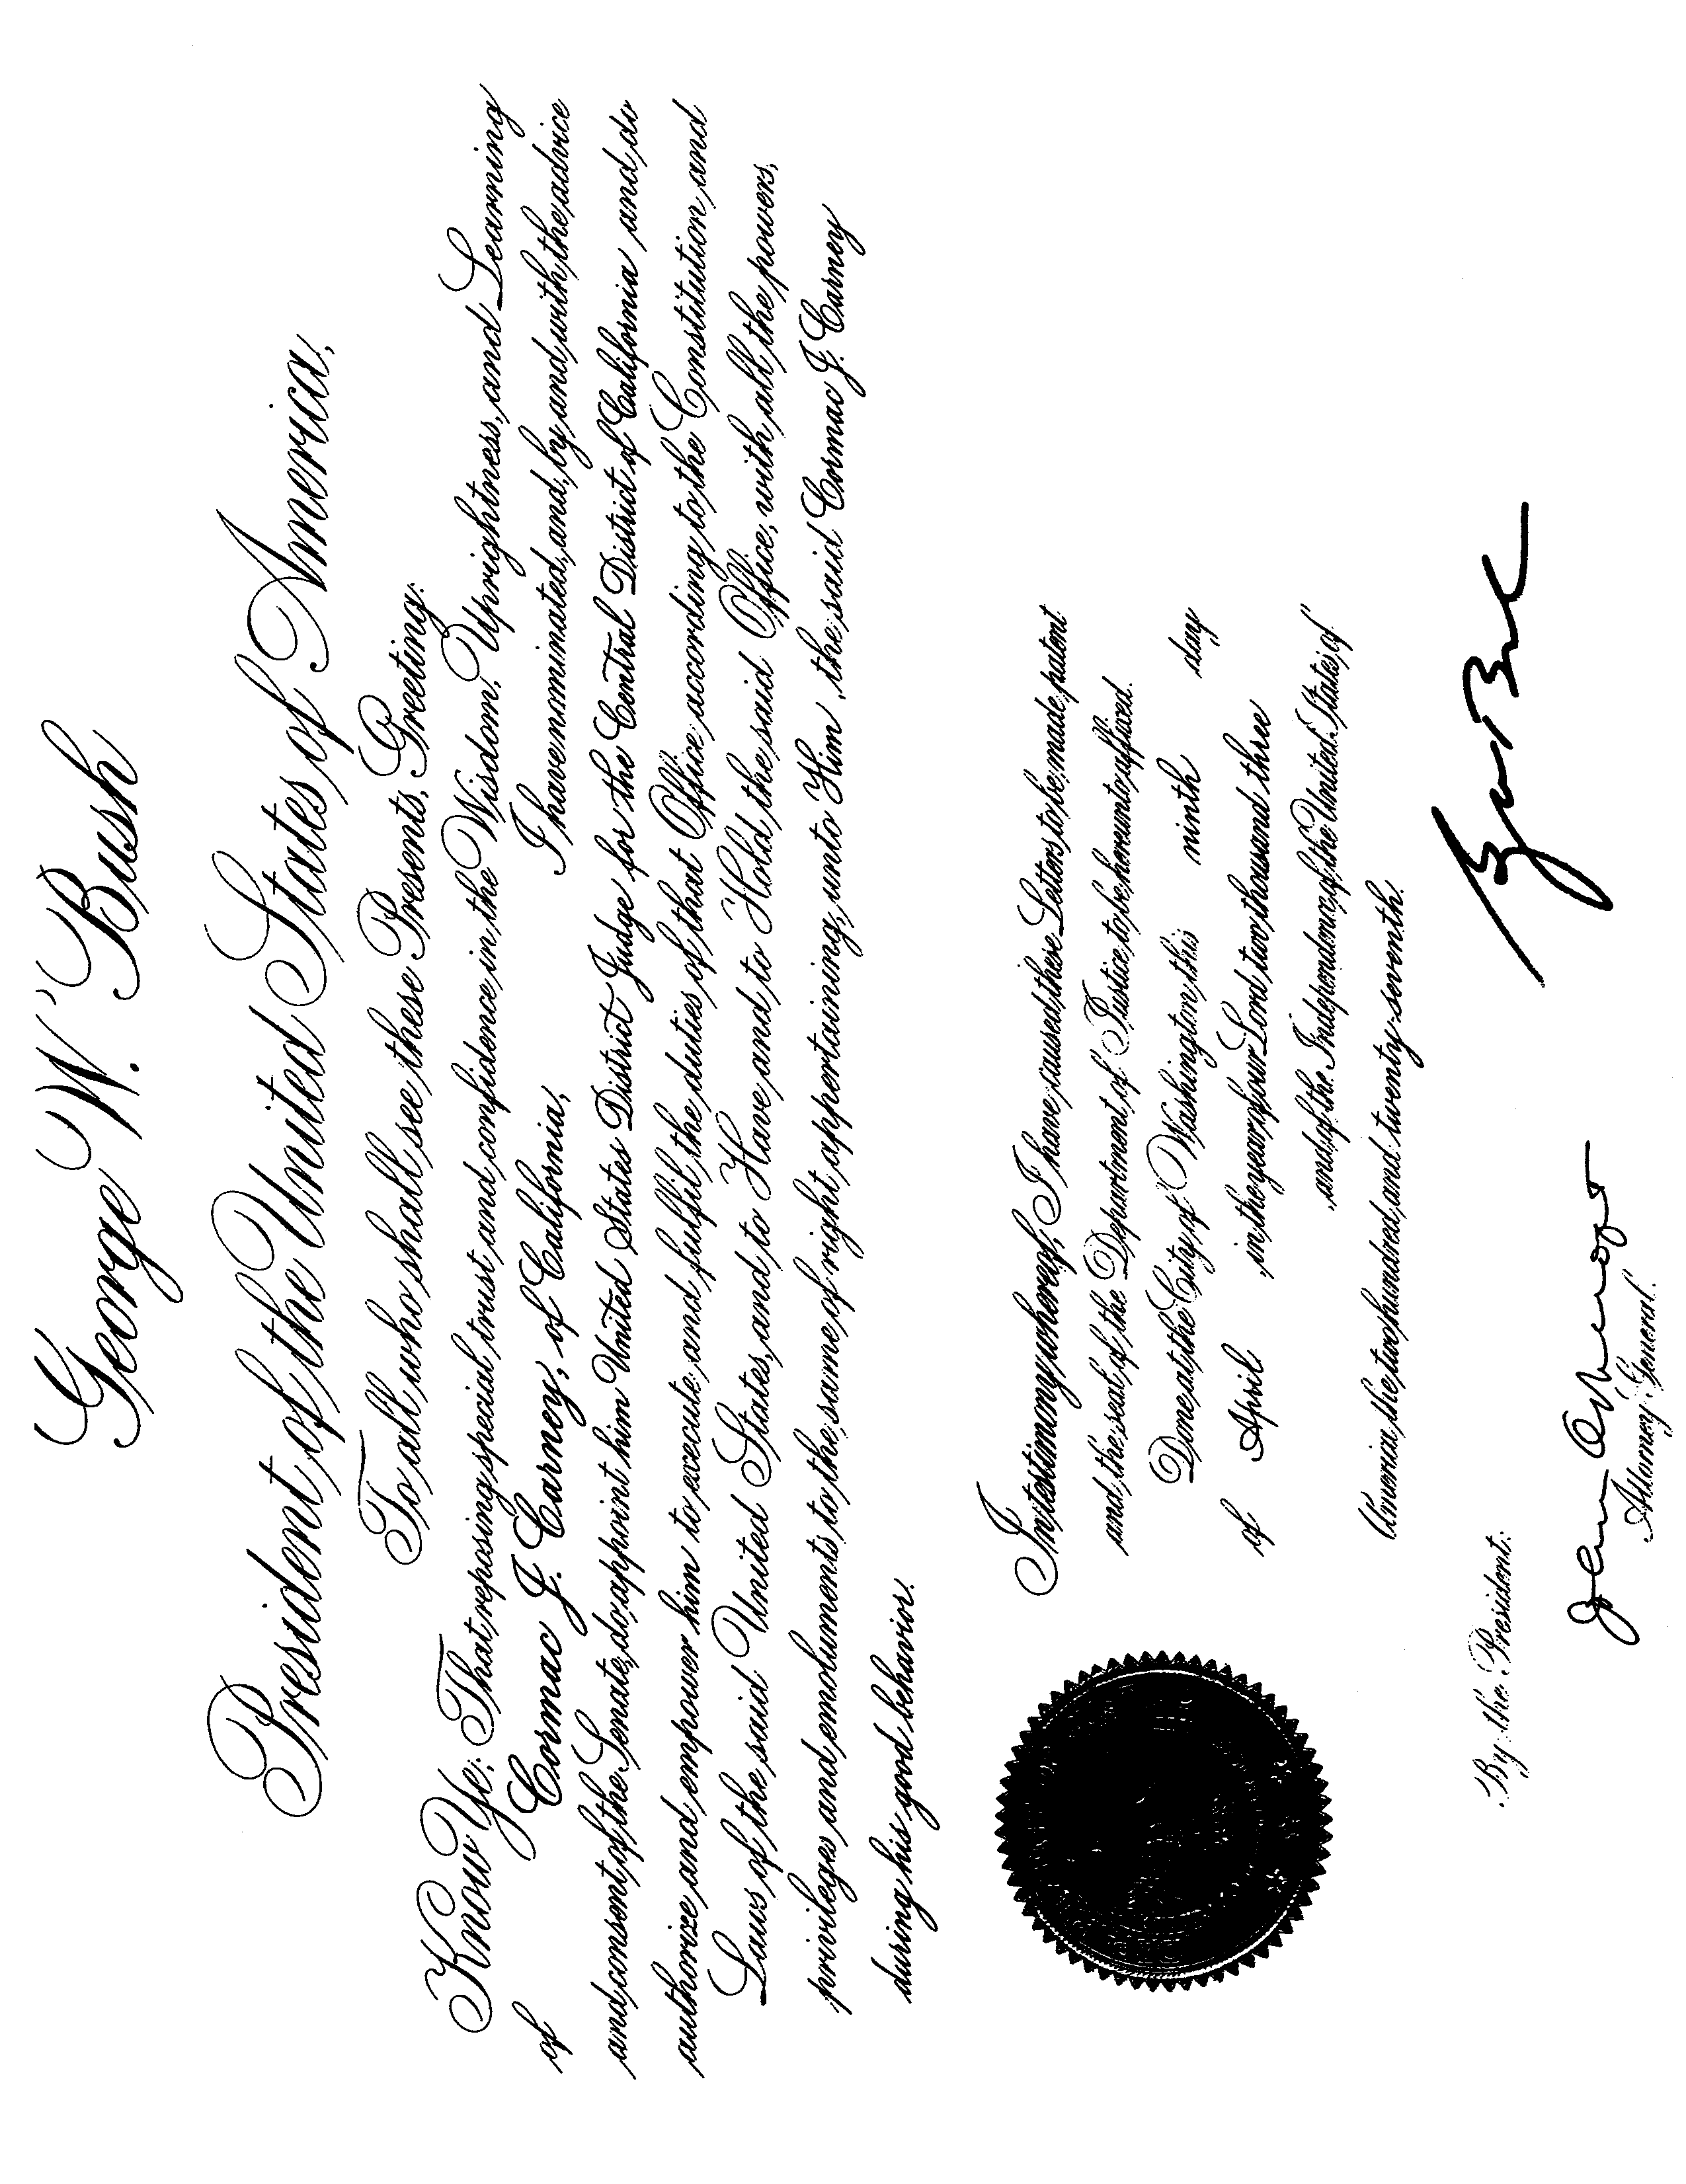 George W. Bush
President of the United States of America,
To all who shall see these Presents, Greeting:
Know Ye: That reposing special trust and confidence in the Wisdom, Uprightness, and Learning
of Cormac J. Carney, of California, I have nominated, and, by and with the advice
and consent of the Senate, do appoint him United States District Judge for the Central District of California and do
authorize and empower him to execute and fulfil the duties of that Office according to the Constitution and
Laws of the said United States, and to Have and to Hold the said Office, with all the powers,
privileges and emoluments to the same of right appertaining, unto Him, the said Cormac J. Carney
during his good behavior.
In testimony whereof, I have caused these Letters to be made patent
and the seal of the Department of Justice to be hereunto affixed.
Done at the City of Washington this ninth day
of April in the year of our Lord two thousand three
and of the Independence of the United States of
America the two hundred and twenty-seventh.
By the President:
Attorney General.